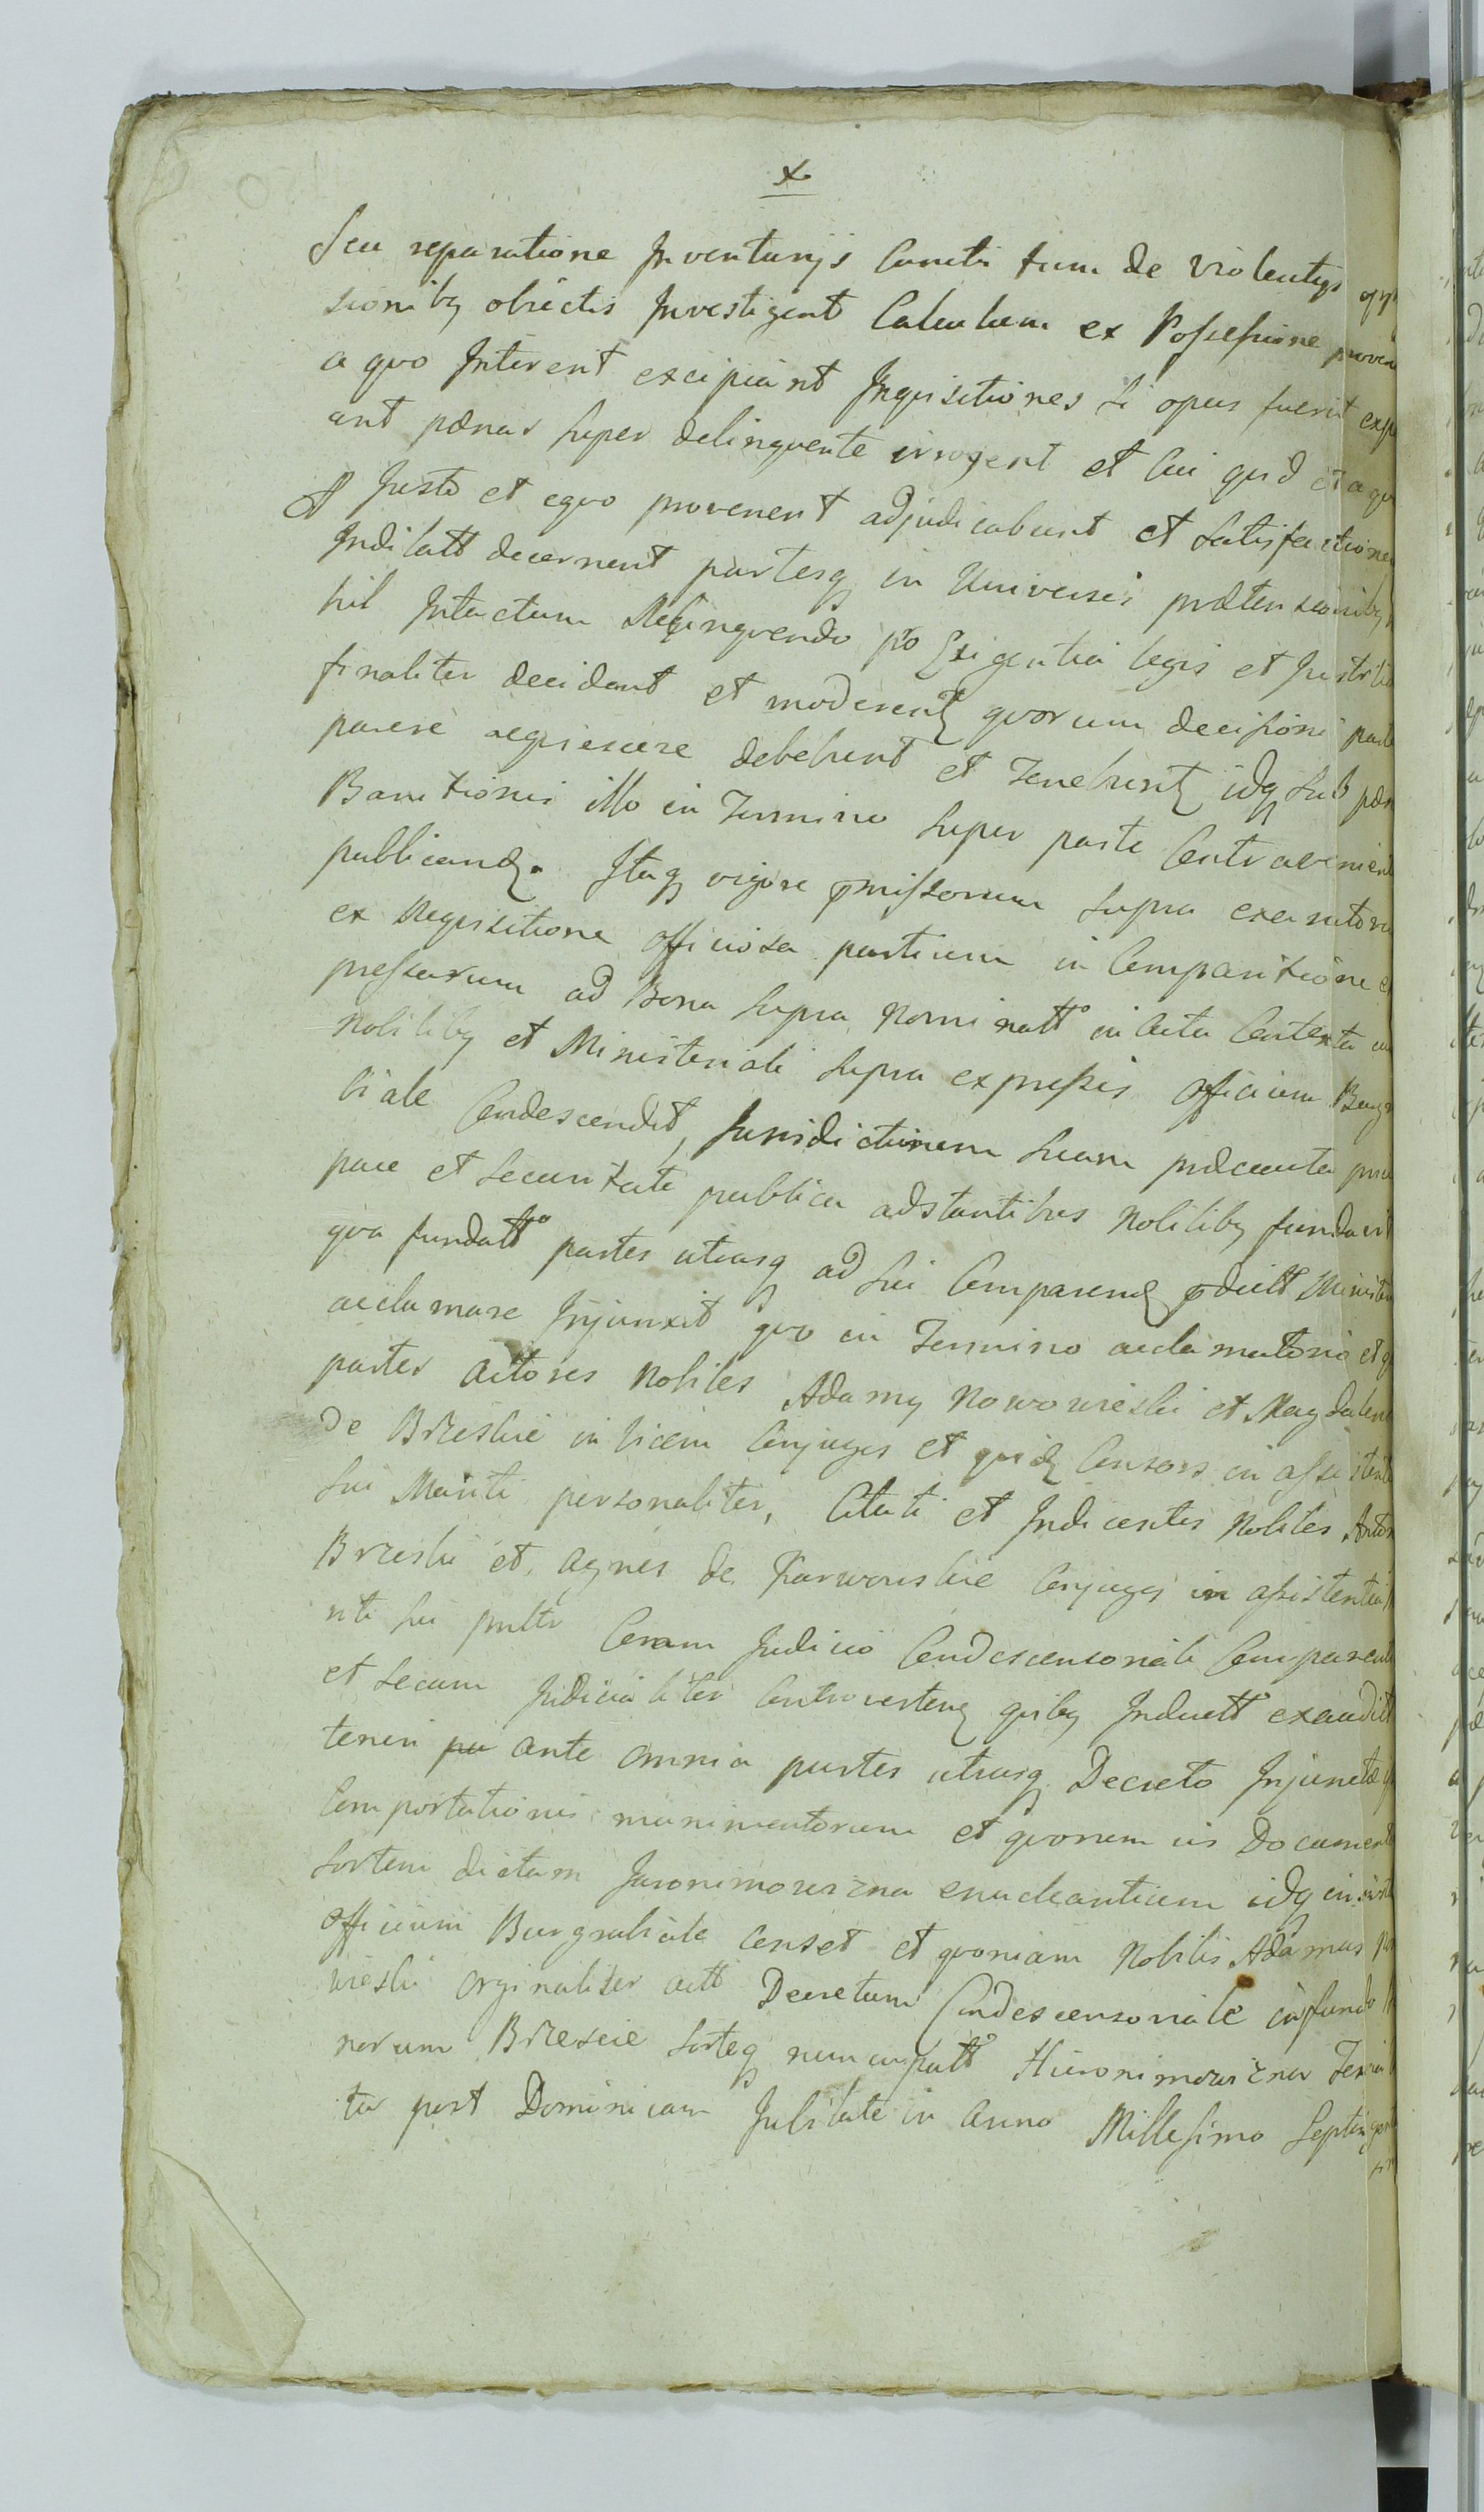 x
Seu reparatione Inventarijs Caneti tum de violentijs opp
sionibq obiectis Investigent Calculum ex Possessione proven
a quo Intererit excipiant Inquisitiones si opus fuerit exp
ant pænas super delinquente irrogent et Cui quid et a quo
A Justo et equo provenerit adjudicabunt et Satisfactionem
Indilatt decernent partesq in Universis prætensionibq
hil Intactum Relinquendo pro Exigentia legis et Justitia
finaliter decidant et moderentq quorum decisioni parte
parere acquiescere debebunt et Tenebuntq idq sub pæn
Banitionis illo in Termino super parte Contravenient
publicandq. Itaq vigore pmissorum supra exarator
ex Requisitione officiosa partium in Comparitione e
pressarum ad Bona supra Nominatto in Acta Contexta cu
Nobilibq et Ministeriali supra expressis Officium Burgr
biale Condescendit, Jurisdictionem suam præcauta priu
pace et securitate publica adstantibus Nobilibq fundavit
qva fundatto partes utrasq ad sui Comparendq pdictt Ministe
acclamare Injunxit quo in Termino acclamatorio et q
partes Actores Nobiles Adamq Nowowieski et Magdalena
De Brzeskie in vicem Conjuges et quidq Consors in assistent
sui Mariti personaliter, Citati et Indicentes Nobiles Anton
Brzeski et Agnes de Karwowskie Conjuges in assistentia
riti sui pultr Coram Judicio Condescensoriali Comparent
et secum Judicialiter Controvertenq quibq Inductto exaudit
teneri pa ante omnia partes utrasq Decreto Injunctæ
Comportationis munimentorum et quorum vis Document
sortem dictam Jaronimowizna enucleantium idq in
officium Burgrabiale Censet et quoniam Nobilis Adamus No
wieski Orginaliter actt Decretum Condescensoriale in fundo
norum Brzescie sorteq nuncupatto Hieronimowizna Feria
ta post Dominicam Jubilate in Anno Millesimo Septingent